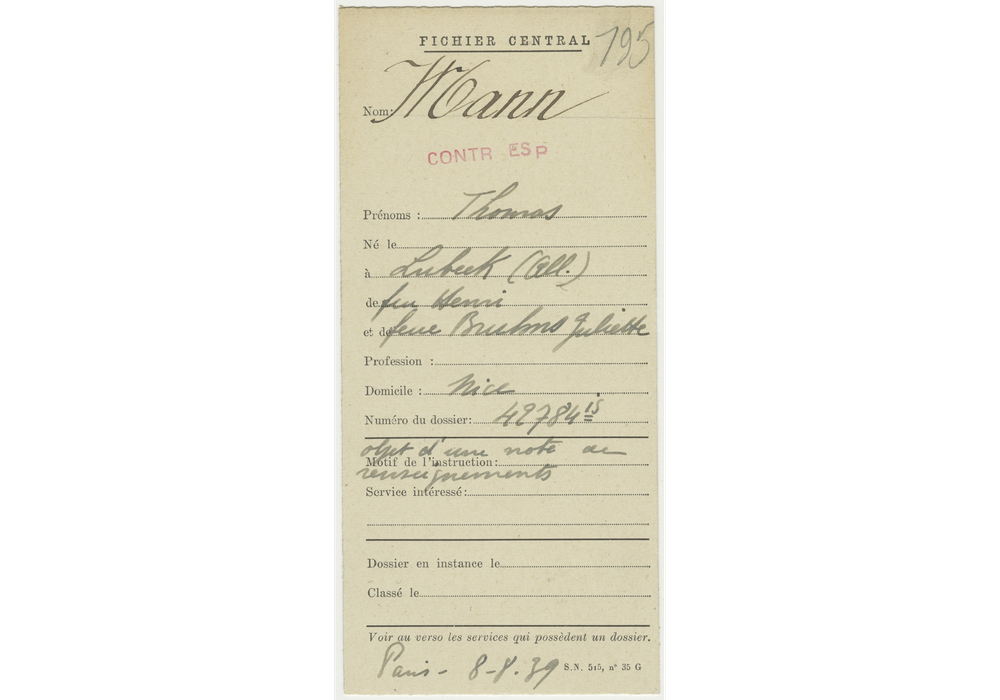 FICHIER CENTRAL
195
Nom: Mann
CONTR ESP
Prénoms : Thomas
Né le
à Lubeck (All.)
de feu Henri
et de feue Bruhns Juliette
Profession :
Domicile : Nice
Numéro du dossier: 42784 is
objet d'une note de
Motif de l'instruction:
renseignements
Service intéressé:
Dossier en instance le
Classé le
Voir au verso les services qui possèdent un dossier.
Paris - 8-8.39 S.N. 515, n° 35 G